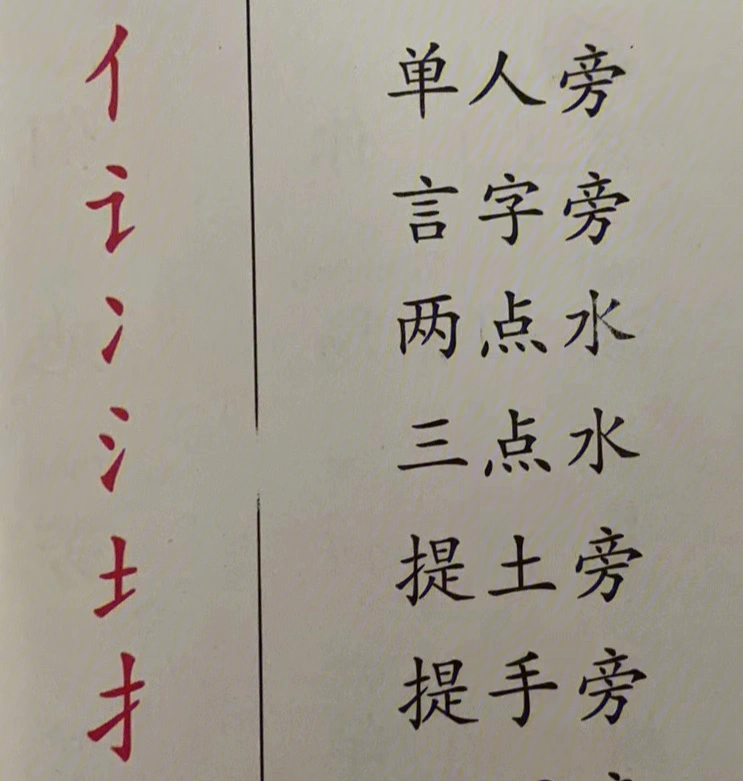 亻 单人旁
讠 言字旁
冫 两点水
氵 三点水
土 提土旁
扌 提手旁